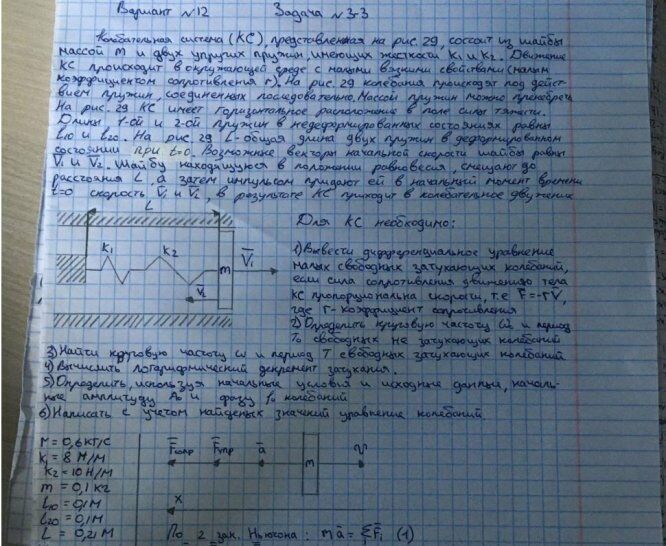 Вариант №12 Задача №3-3
Колебательная система (КС), представленная на рис. 29, состоит из шайбы
массой m и двух упругих пружин, имеющих жесткости K1 и K2. Движение
КС происходит в окружающей среде с малыми вязкими свойствами (малым
коэффициентом сопротивления r). На рис. 29 колебания происходят под дейст-
вием пружин, соединенных последовательно. Массой пружин можно пренебречь
На рис. 29 КС имеет горизонтальное расположение в поле силы тяжести.
Длины 1-ой и 2-ой пружин в недеформированных состояниях равны
l10 и l20. На рис. 29 L-общая длина двух пружин в деформированном
состоянии при t=0. Возможные векторы начальной скорости шайбы равны
V1 и V2. Шайбу находящуюся в положении равновесия, смещают до
расстояния L, а затем импульсом придают ей в начальный момент времени
t=0 скорость V1 и V2, в результате КС приходит в колебательное движение
L
K1 K2 m V1
V2
Для КС необходимо:
1) Вывести дифференциальное уравнение
малых свободных затухающих колебаний,
если сила сопротивления движению тела
КС пропорциональна скорости, т.е F=-rV,
где r-коэффициент сопротивления
2) Определить круговую частоту ω0 и период
T0 свободных не затухающих колебаний
3) Найти круговую частоту ω и период T свободных затухающих колебаний
4) Вычислить логарифмический декремент затухания.
5) Определить, используя начальные условия и исходные данные, началь-
ные амплитуду A0 и фазу φ0 колебаний
6) Написать с учетом найденых значений уравнение колебаний.
r = 0,6 кг/с
K1 = 8 Н/м
K2 = 10 Н/м
m = 0,1 кг
l10 = 0,1 м
l20 = 0,1 м
L = 0,21 м
Fсопр Fупр a m V
x
По 2 зак. Ньютона: ma = ΣFi (1)